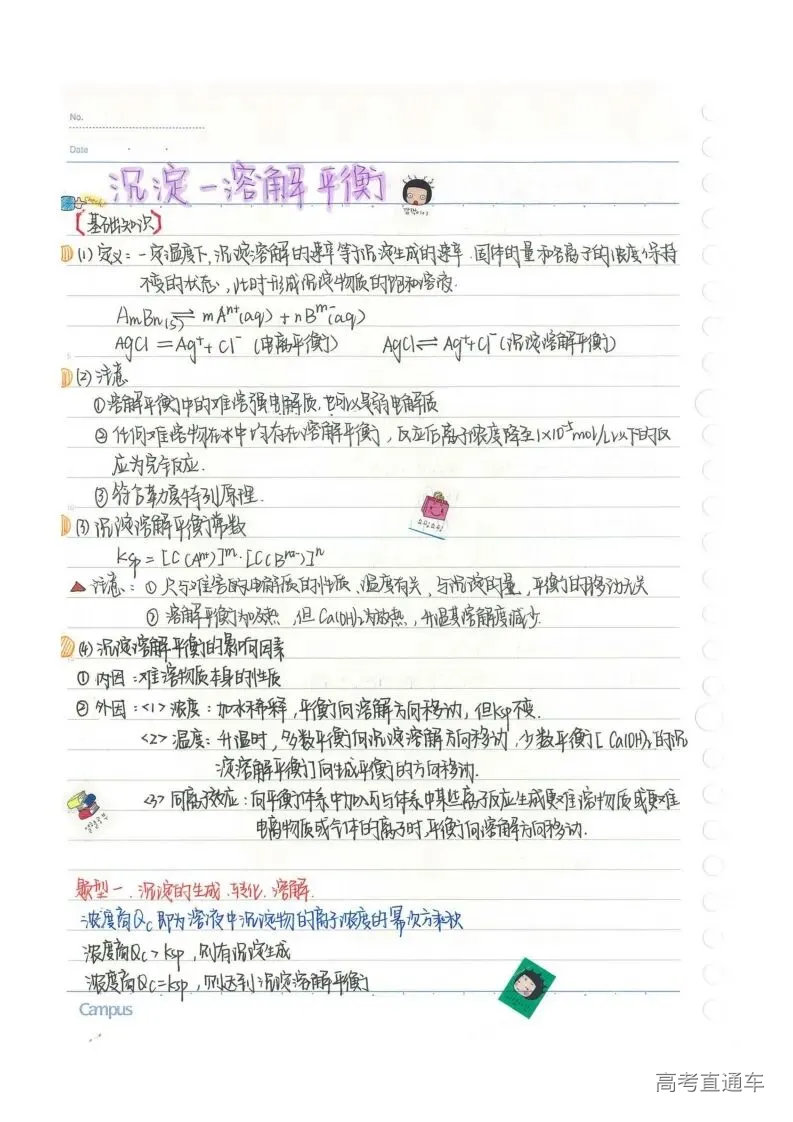 No.
Date
沉淀-溶解平衡
Check!
【基础知识】
(1) 定义:一定温度下,沉淀溶解的速率等于沉淀生成的速率.固体的量和各离子的浓度保持
不变的状态,此时形成沉淀物质的饱和溶液.
AmBn(s)⇌mAⁿ⁺(aq)+nBᵐ⁻(aq)
AgCl=Ag⁺+Cl⁻(电离平衡) AgCl⇌Ag⁺+Cl⁻(沉淀溶解平衡)
(2) 注意
①溶解平衡中的难溶强电解质,也可以是弱电解质
②任何难溶物在水中均存在溶解平衡,反应后离子浓度降至1×10⁻⁵mol/L以下的反
应为完全反应.
③符合勒夏特列原理.
(3) 沉淀溶解平衡常数
Ksp=[C(Aⁿ⁺)]ᵐ·[C(Bᵐ⁻)]ⁿ
注意:①只与难溶的电解质的性质、温度有关,与沉淀的量,平衡的移动无关
②溶解平衡为吸热,但Ca(OH)₂为放热,升温其溶解度减少.
(4) 沉淀溶解平衡的影响因素
①内因:难溶物质本身的性质
②外因:<1>浓度:加水稀释,平衡向溶解方向移动,但Ksp不变.
<2>温度:升温时,多数平衡向沉淀溶解方向移动,少数平衡[Ca(OH)₂的沉
淀溶解平衡]向生成平衡的方向移动.
<3>同离子效应:向平衡体系中加入可与体系中某些离子反应生成更难溶物质或更难
电离物质或气体的离子时,平衡向溶解方向移动.
题型一、沉淀的生成、转化、溶解.
浓度商Qc即为溶液中沉淀物的离子浓度的幂次方乘积
浓度商Qc>Ksp,则有沉淀生成
浓度商Qc=Ksp,则达到沉淀溶解平衡
Campus
高考直通车